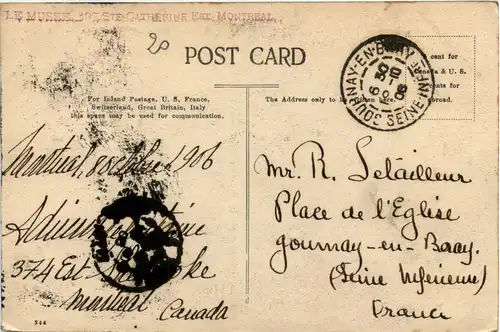 LE MUSEE, 107, STE-CATHERINE EST, MONTREAL.
20
POST CARD
For Inland Postage, U. S., France,
Switzerland, Great Britain, Italy
this space may be used for communication.
The Address only to be
cent for
Canada & U. S.
cents for
abroad.
GOURNAY-EN-BRAY
6 30
SEINE INF
Montréal, 1906
374 Est
Montréal Canada
Mr. R. Letailleur
Place de l'Eglise
Gournay-en-Bray.
(Seine Inférieure)
France
944